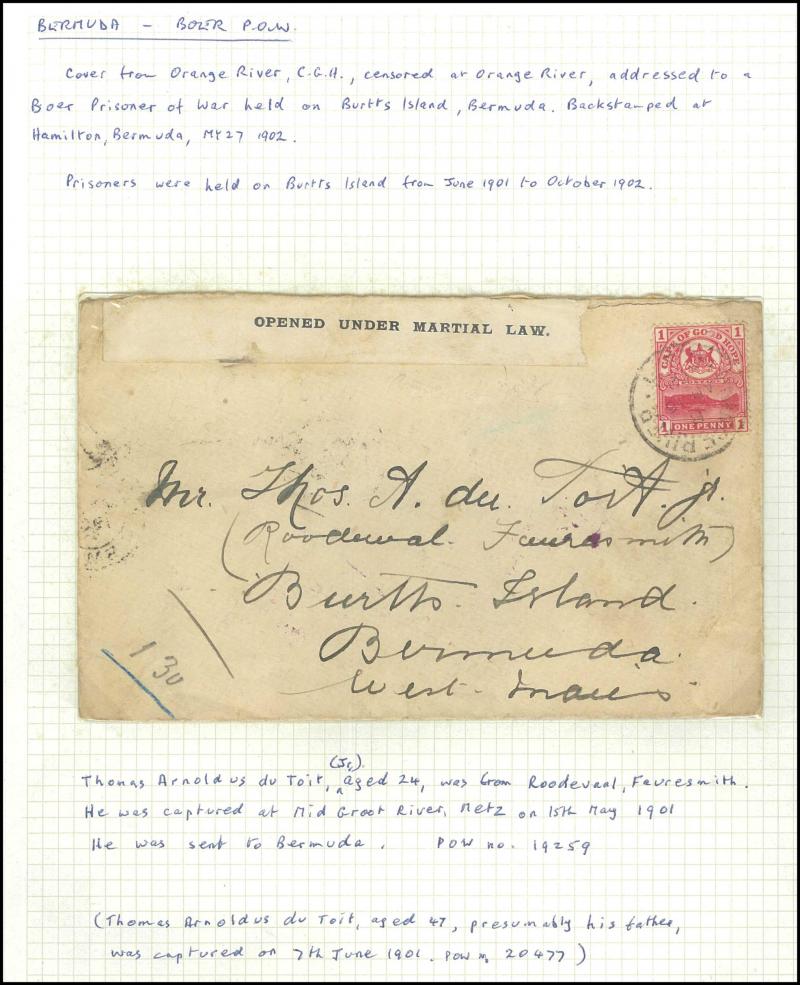 BERMUDA - BOER P.O.W.
Cover from Orange River, C.G.H., censored at Orange River, addressed to a
Boer Prisoner of War held on Burtts Island, Bermuda. Backstamped at
Hamilton, Bermuda, MY27 1902.
Prisoners were held on Burtts Island from June 1901 to October 1902.
OPENED UNDER MARTIAL LAW.
1 1
CAPE OF GOOD HOPE
1 ONE PENNY 1
Mr. Thos. A. du. Toit. jr.
(Roodewal. Fauresmith)
Burtts. Island.
Bermuda.
West-Indies
1 30
(Jr,).
Thomas Arnoldus du Toit, ^aged 24, was from Roodevaal, Fauresmith.
He was captured at Mid Groot River, Metz on 15th May 1901
He was sent to Bermuda. POW no. 19259
(Thomas Arnoldus du Toit, aged 47, presumably his father,
was captured on 7th June 1901. POW n. 20477)